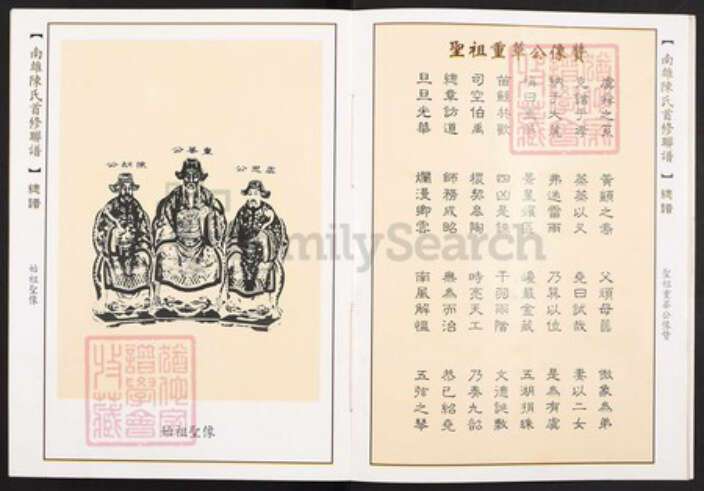 【南雄陳氏首修聯譜】總譜
始祖聖像
重華公
陳胡公
虞思公
始祖聖像
聖祖重華公像贊
虞舜之 黃顓之裔 父頑母嚚 傲象為弟
克諧 烝烝以乂 堯曰試哉 妻以二女
納于大麓 弗迷雷雨 乃巽以位 是為有虞
五湖
四凶是誅 干羽兩階 文德誕敷
司空伯禹 稷契皋陶 時亮天工 乃奏九韶
總章訪道 師務成昭 無為而治 恭己紹堯
旦旦光華 爛漫卿雲 南風解慍 五弦之琴
【南雄陳氏首修聯譜】總譜
聖祖重華公像贊
FamilySearch